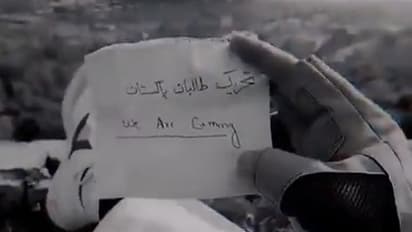 تحریک طالبان پاکستان
We Are Coming